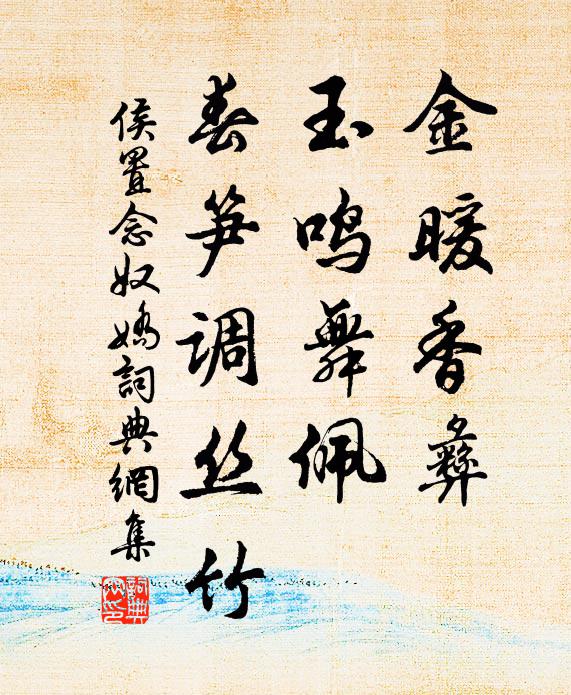 金暖香彝
玉鸣舞佩
春笋调丝竹
侯置念奴娇詞典網集
詞典